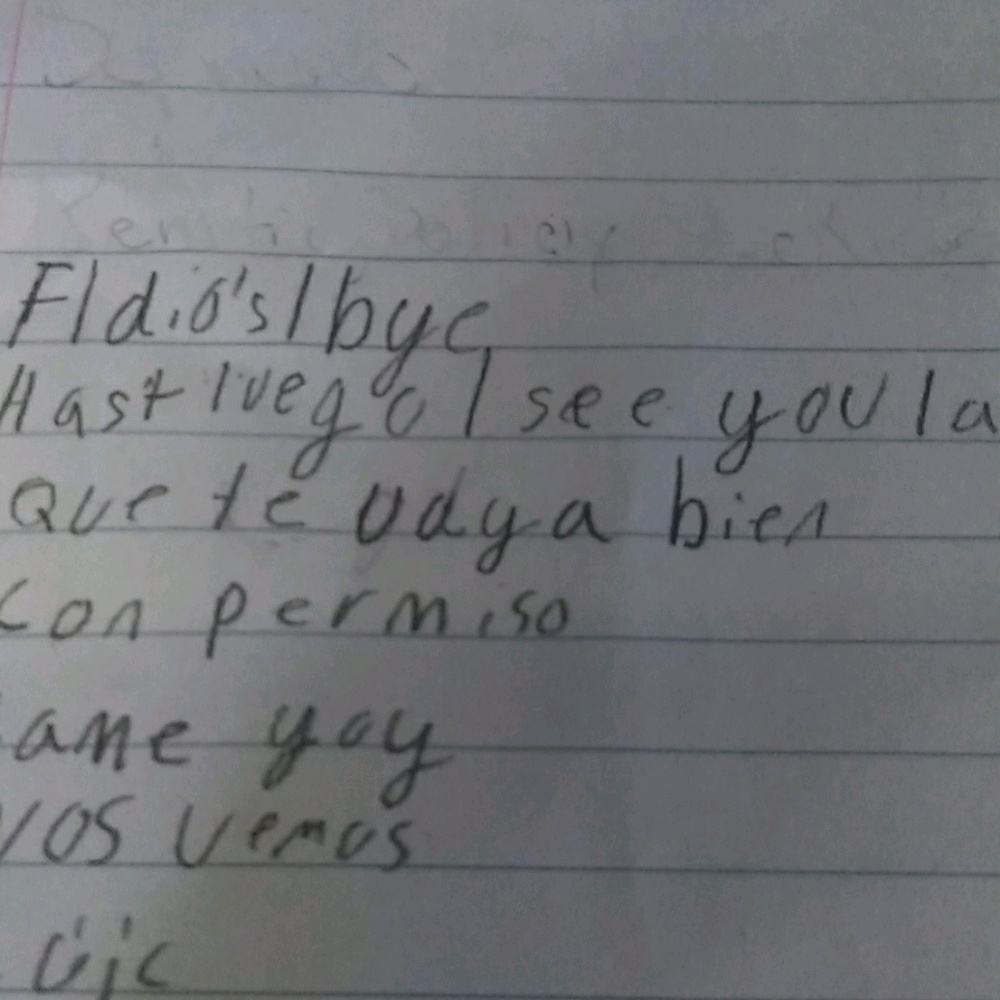 Adió's/bye
Hast luego/see you la
Que te vaya bien
Con permiso
ame yoy
Nos vemos